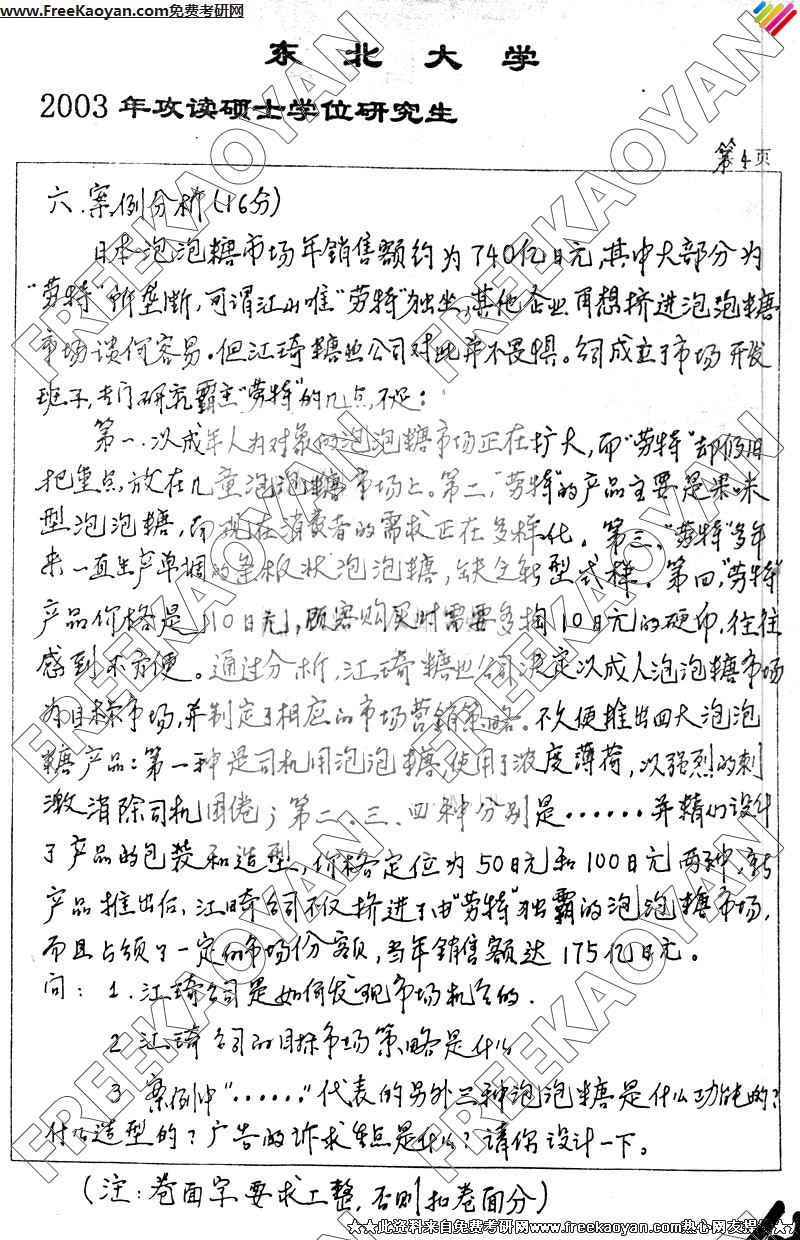 www.FreeKaoyan.com免费考研网
东北大学
2003年攻读硕士学位研究生
第4页
六.案例分析(16分)
日本泡泡糖市场年销售额约为740亿日元,其中大部分为
"劳特"所垄断,可谓江山唯"劳特"独坐,其他企业再想挤进泡泡糖
市场谈何容易。但江琦糖业公司对此并不畏惧。公司成立了市场开发
班子,专门研究霸主"劳特"的几点不足:
第一.以成年人为对象的泡泡糖市场正在扩大,而"劳特"却仍旧
把重点放在儿童泡泡糖市场上。第二,"劳特"的产品主要是果味
型泡泡糖,而现在消费者的需求正在多样化。第三,"劳特"多年
来一直生产单调的条板状泡泡糖,缺乏新型式样。第四,"劳特"
产品价格是110日元,顾客购买时需要多掏10日元的硬币,往往
感到不方便。通过分析,江琦糖业公司决定以成人泡泡糖市场
为目标市场,并制定了相应的市场营销策略。不久便推出四大泡泡
糖产品:第一种是司机用泡泡糖,使用了浓度薄荷,以强烈的刺
激消除司机困倦;第二.三.四种分别是……并精心设计
了产品的包装和造型,价格定位为50日元和100日元两种,新
产品推出后,江琦公司不仅挤进了由"劳特"独霸的泡泡糖市场,
而且占领了一定的市场份额,当年销售额达175亿日元。
问:1.江琦公司是如何发现市场机会的.
2 江琦公司的目标市场策略是什么
3 案例中"……"代表的另外三种泡泡糖是什么功能的?
什么造型的?广告的诉求重点是什么?请你设计一下。
(注:卷面字要求工整,否则扣卷面分)
★★此资料来自免费考研网www.freekaoyan.com热心网友提供★★
FREEKAOYAN